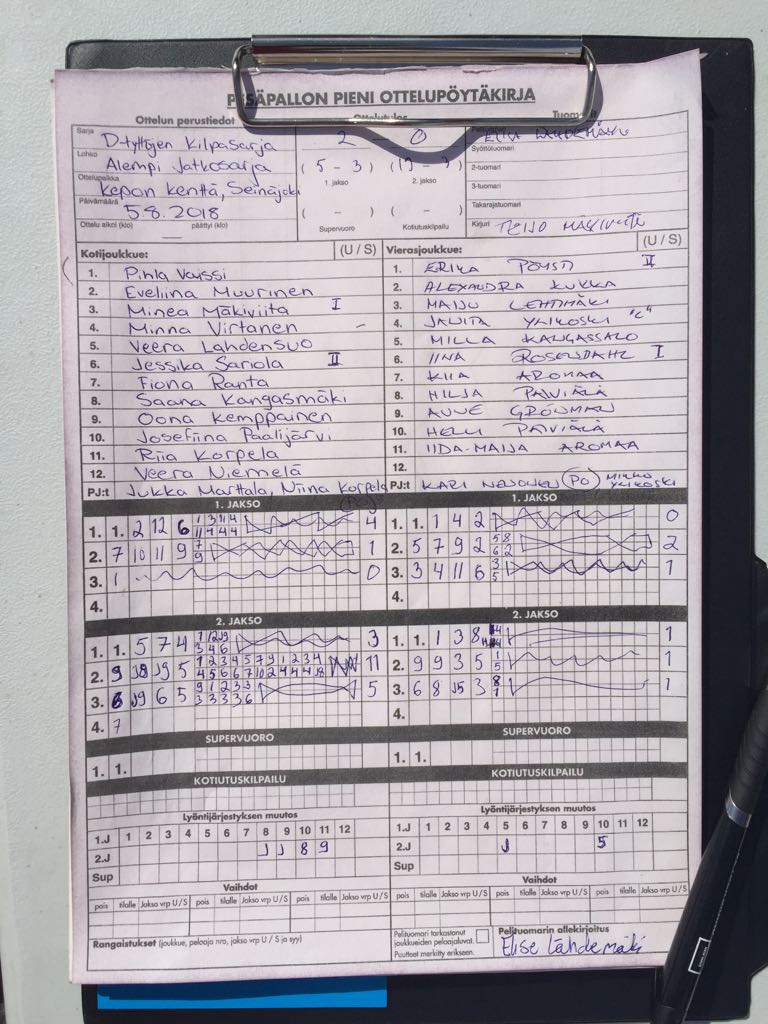 PESÄPALLON PIENI OTTELUPÖYTÄKIRJA
Ottelun perustiedot
Sarja D-tyttöjen Kilpasarja
Lohko Alempi Jatkosarja
Ottelupaikka Kepon kenttä, Seinäjoki
Päivämäärä 5.8.2018
Ottelu alkoi (klo) päättyi (klo)
2 0
(5 - 3)
1. jakso 2. jakso
( - ) ( - )
Supervuoro Kotiutuskilpailu
Syöttötuomari
2-tuomari
3-tuomari
Takarajatuomari
Kirjuri TEIJO
Kotijoukkue: (U / S)
1. Pihla Vayssi
2. Eveliina Muurinen
3. Minea Mäkiviita I
4. Minna Virtanen
5. Veera Lahdensuo
6. Jessika Sariola II
7. Fiona Ranta
8. Saana Kangasmäki
9. Oona Kemppainen
10. Josefiina Paalijärvi
11. Riia Korpela
12. Veera Niemelä
PJ:t Jukka Marttala, Niina Korpela
Vierasjoukkue: (U / S)
1. ERIKA II
2. ALEXANDRA KUKKA
3. MAIJU LEHTIMÄKI
4. JANITA YLIKOSKI "C"
5. MILLA KANGASSALO
6. IINA ROSENDAHL I
7. KIIA AROMAA
8. HILJA PÄIVIÄLÄ
9. GRÖNMAN
10. HELMI PÄIVIÄLÄ
11. IIDA-MAIJA AROMAA
12.
PJ:t KARI (PO) MIKKO YLIKOSKI
1. JAKSO
1. 1. 2 12 6 4
2. 7 10 11 9 7 9 1
3. 1 0
4.
1. JAKSO
1. 1. 1 4 2 0
2. 5 7 9 2 5 8 6 2 2
3. 3 4 11 6 3 5 1
4.
2. JAKSO
1. 1. 5 7 4 3
2. 9 J8 J9 5 11
3. 6 J9 6 5 5
4. 7
2. JAKSO
1. 1. 1 3 8 1
2. 9 9 3 5 1 5 1
3. 6 8 J5 3 8 1 1
4.
SUPERVUORO
1. 1.
SUPERVUORO
1. 1.
KOTIUTUSKILPAILU
KOTIUTUSKILPAILU
Lyöntijärjestyksen muutos
1.J 1 2 3 4 5 6 7 8 9 10 11 12
2.J J J 8 9
Sup
Lyöntijärjestyksen muutos
1.J 1 2 3 4 5 6 7 8 9 10 11 12
2.J J 5
Sup
Vaihdot
pois tilalle Jakso vrp U / S pois tilalle Jakso vrp U / S
Vaihdot
pois tilalle Jakso vrp U / S pois tilalle Jakso vrp U / S
Rangaistukset (joukkue, pelaaja nro, jakso vrp U / S ja syy)
Pelituomari tarkastanut
joukkueiden pelaajaluvat.
Puutteet merkitty erikseen.
Pelituomarin allekirjoitus
Elise Lähdemäki